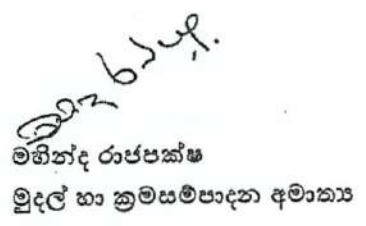 මහින්ද රාජපක්ෂ
මුදල් හා ක්‍රමසම්පාදන අමාත්‍ය